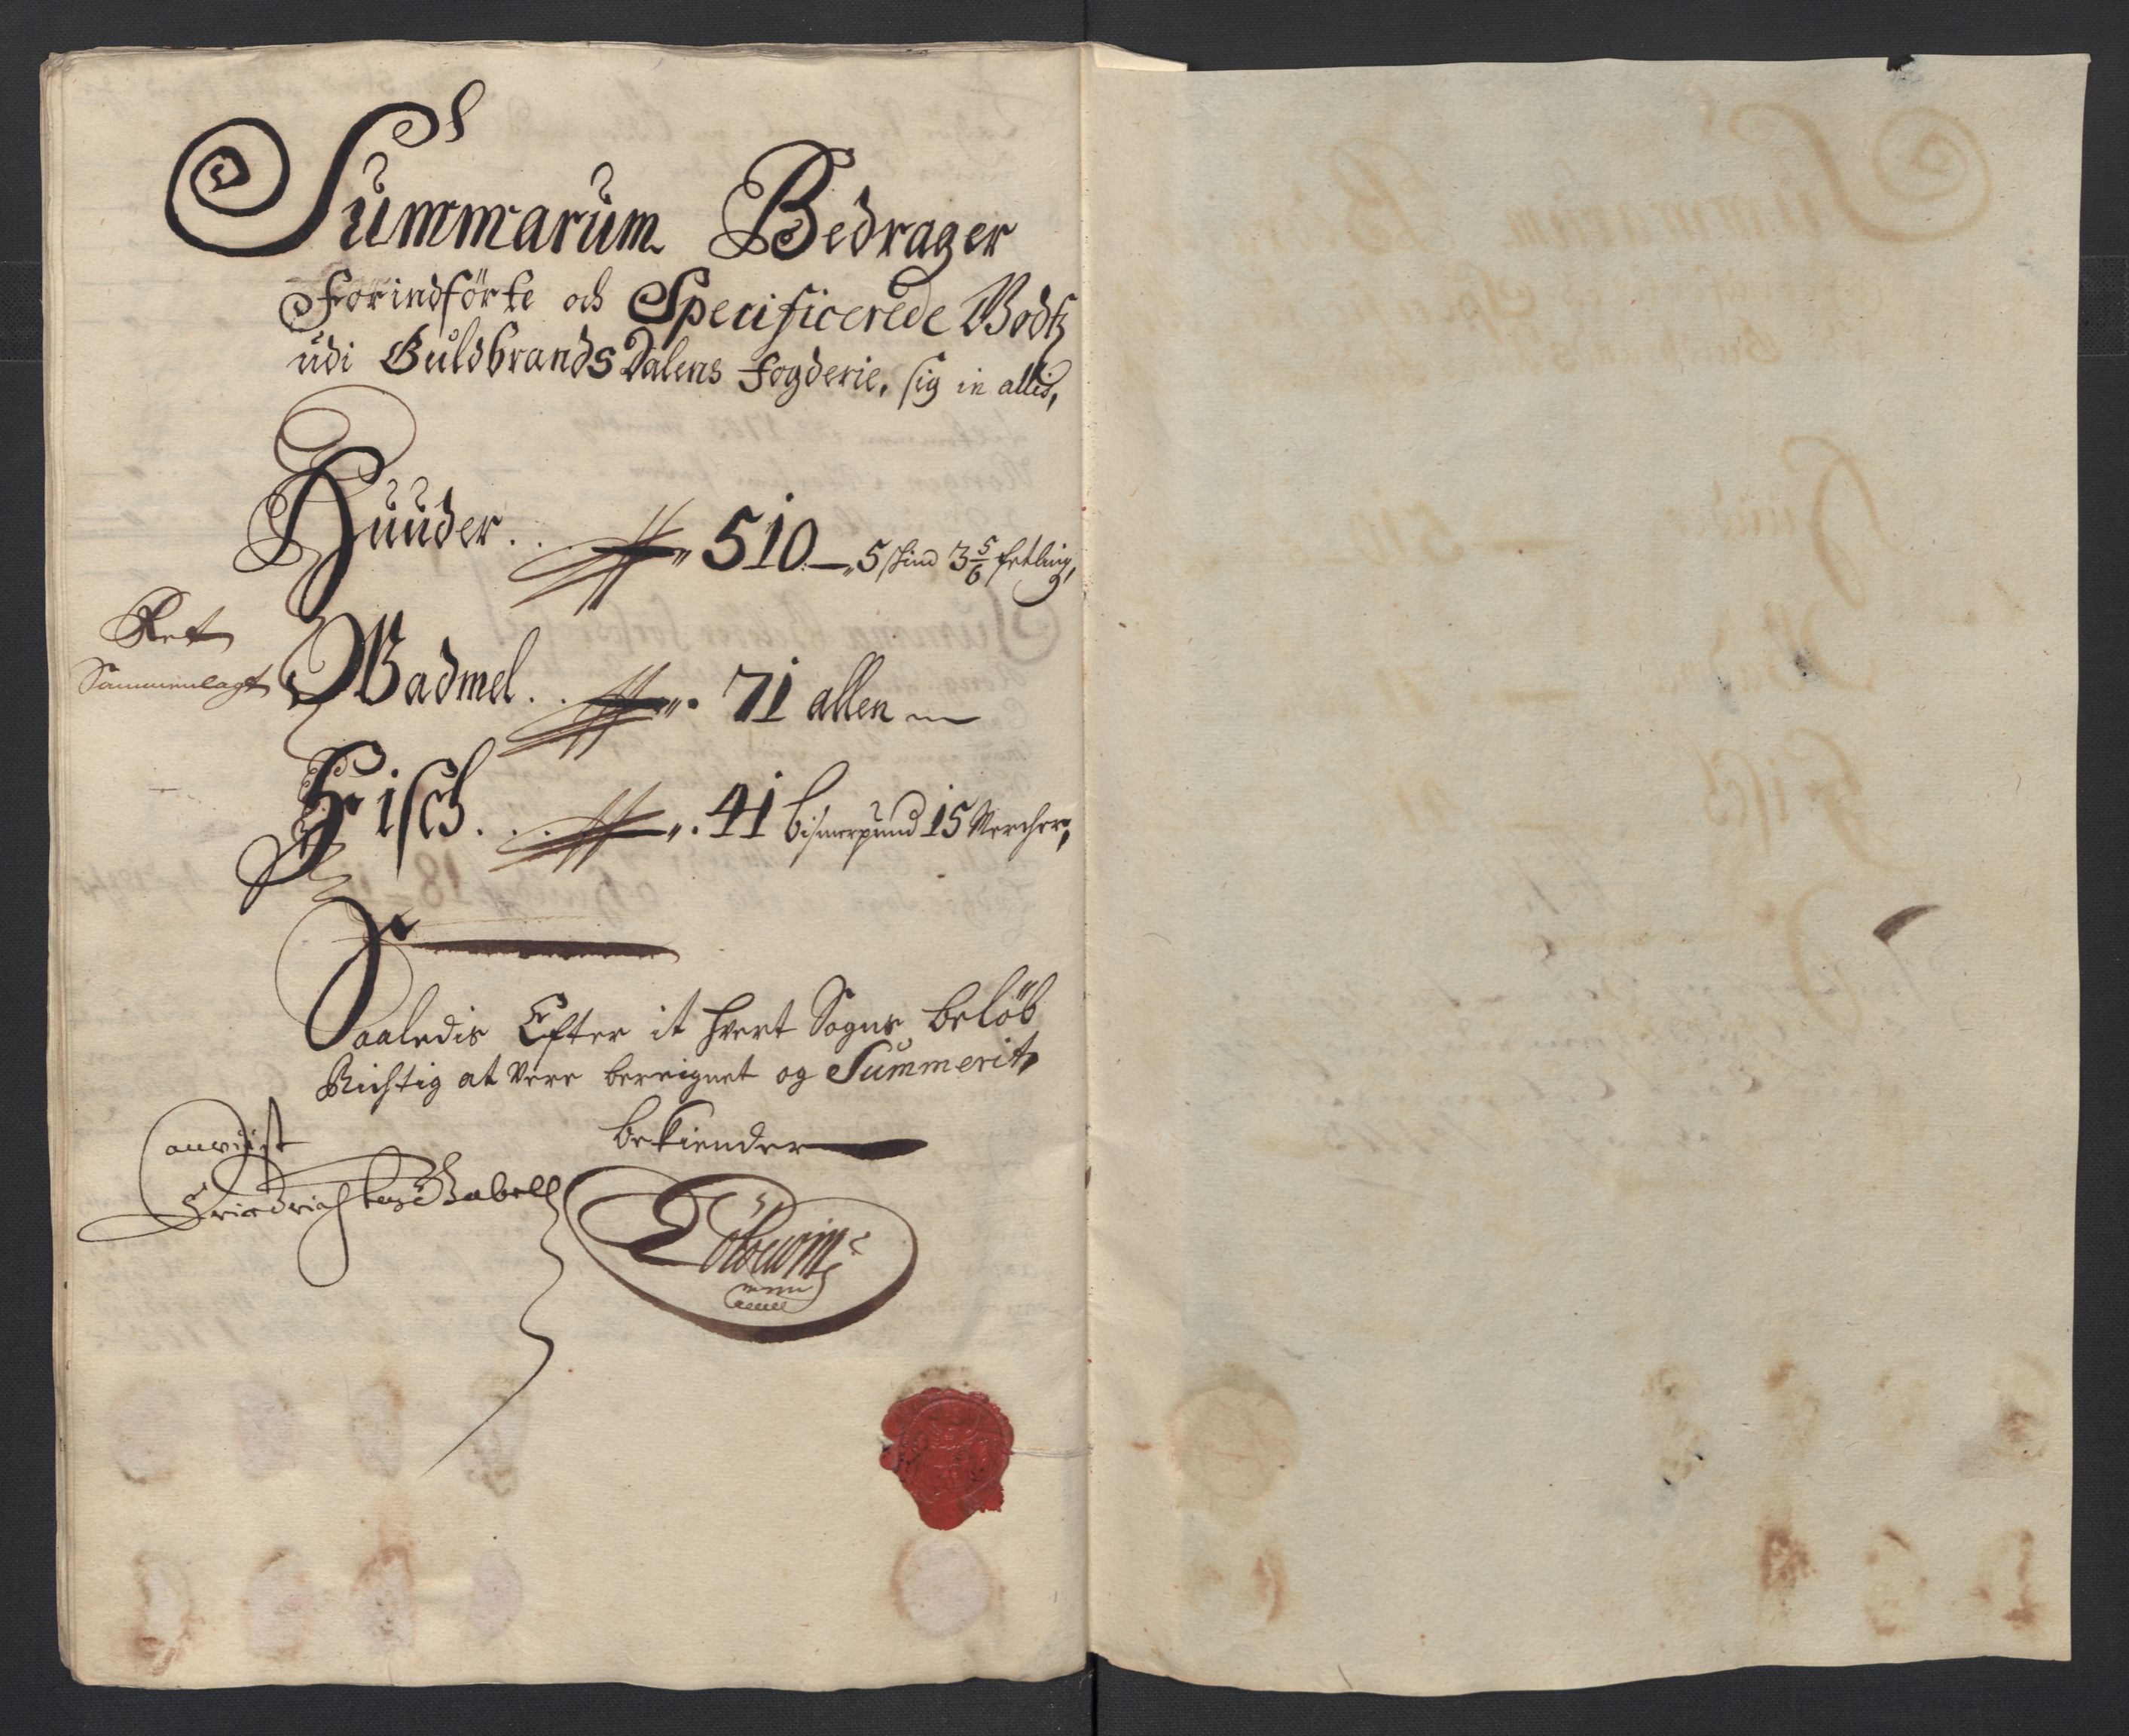 Summarum Bedrager
Forindförte och Specificerede Bods
udi Guldbrands Dalens Fogderie, sig in alles,
Huuder . . 510 — 5 skind 3 5/6 fetling,
Ret
Sammenlagt
Wadmel . . 71 allen
Fisch . . . 41 bismerpund 15 Mercher,
Saaledis Efter it hvert Sogns beløb
Richtig at Vere beregnet og Summerit,
bekiender
Friedrich Gabell